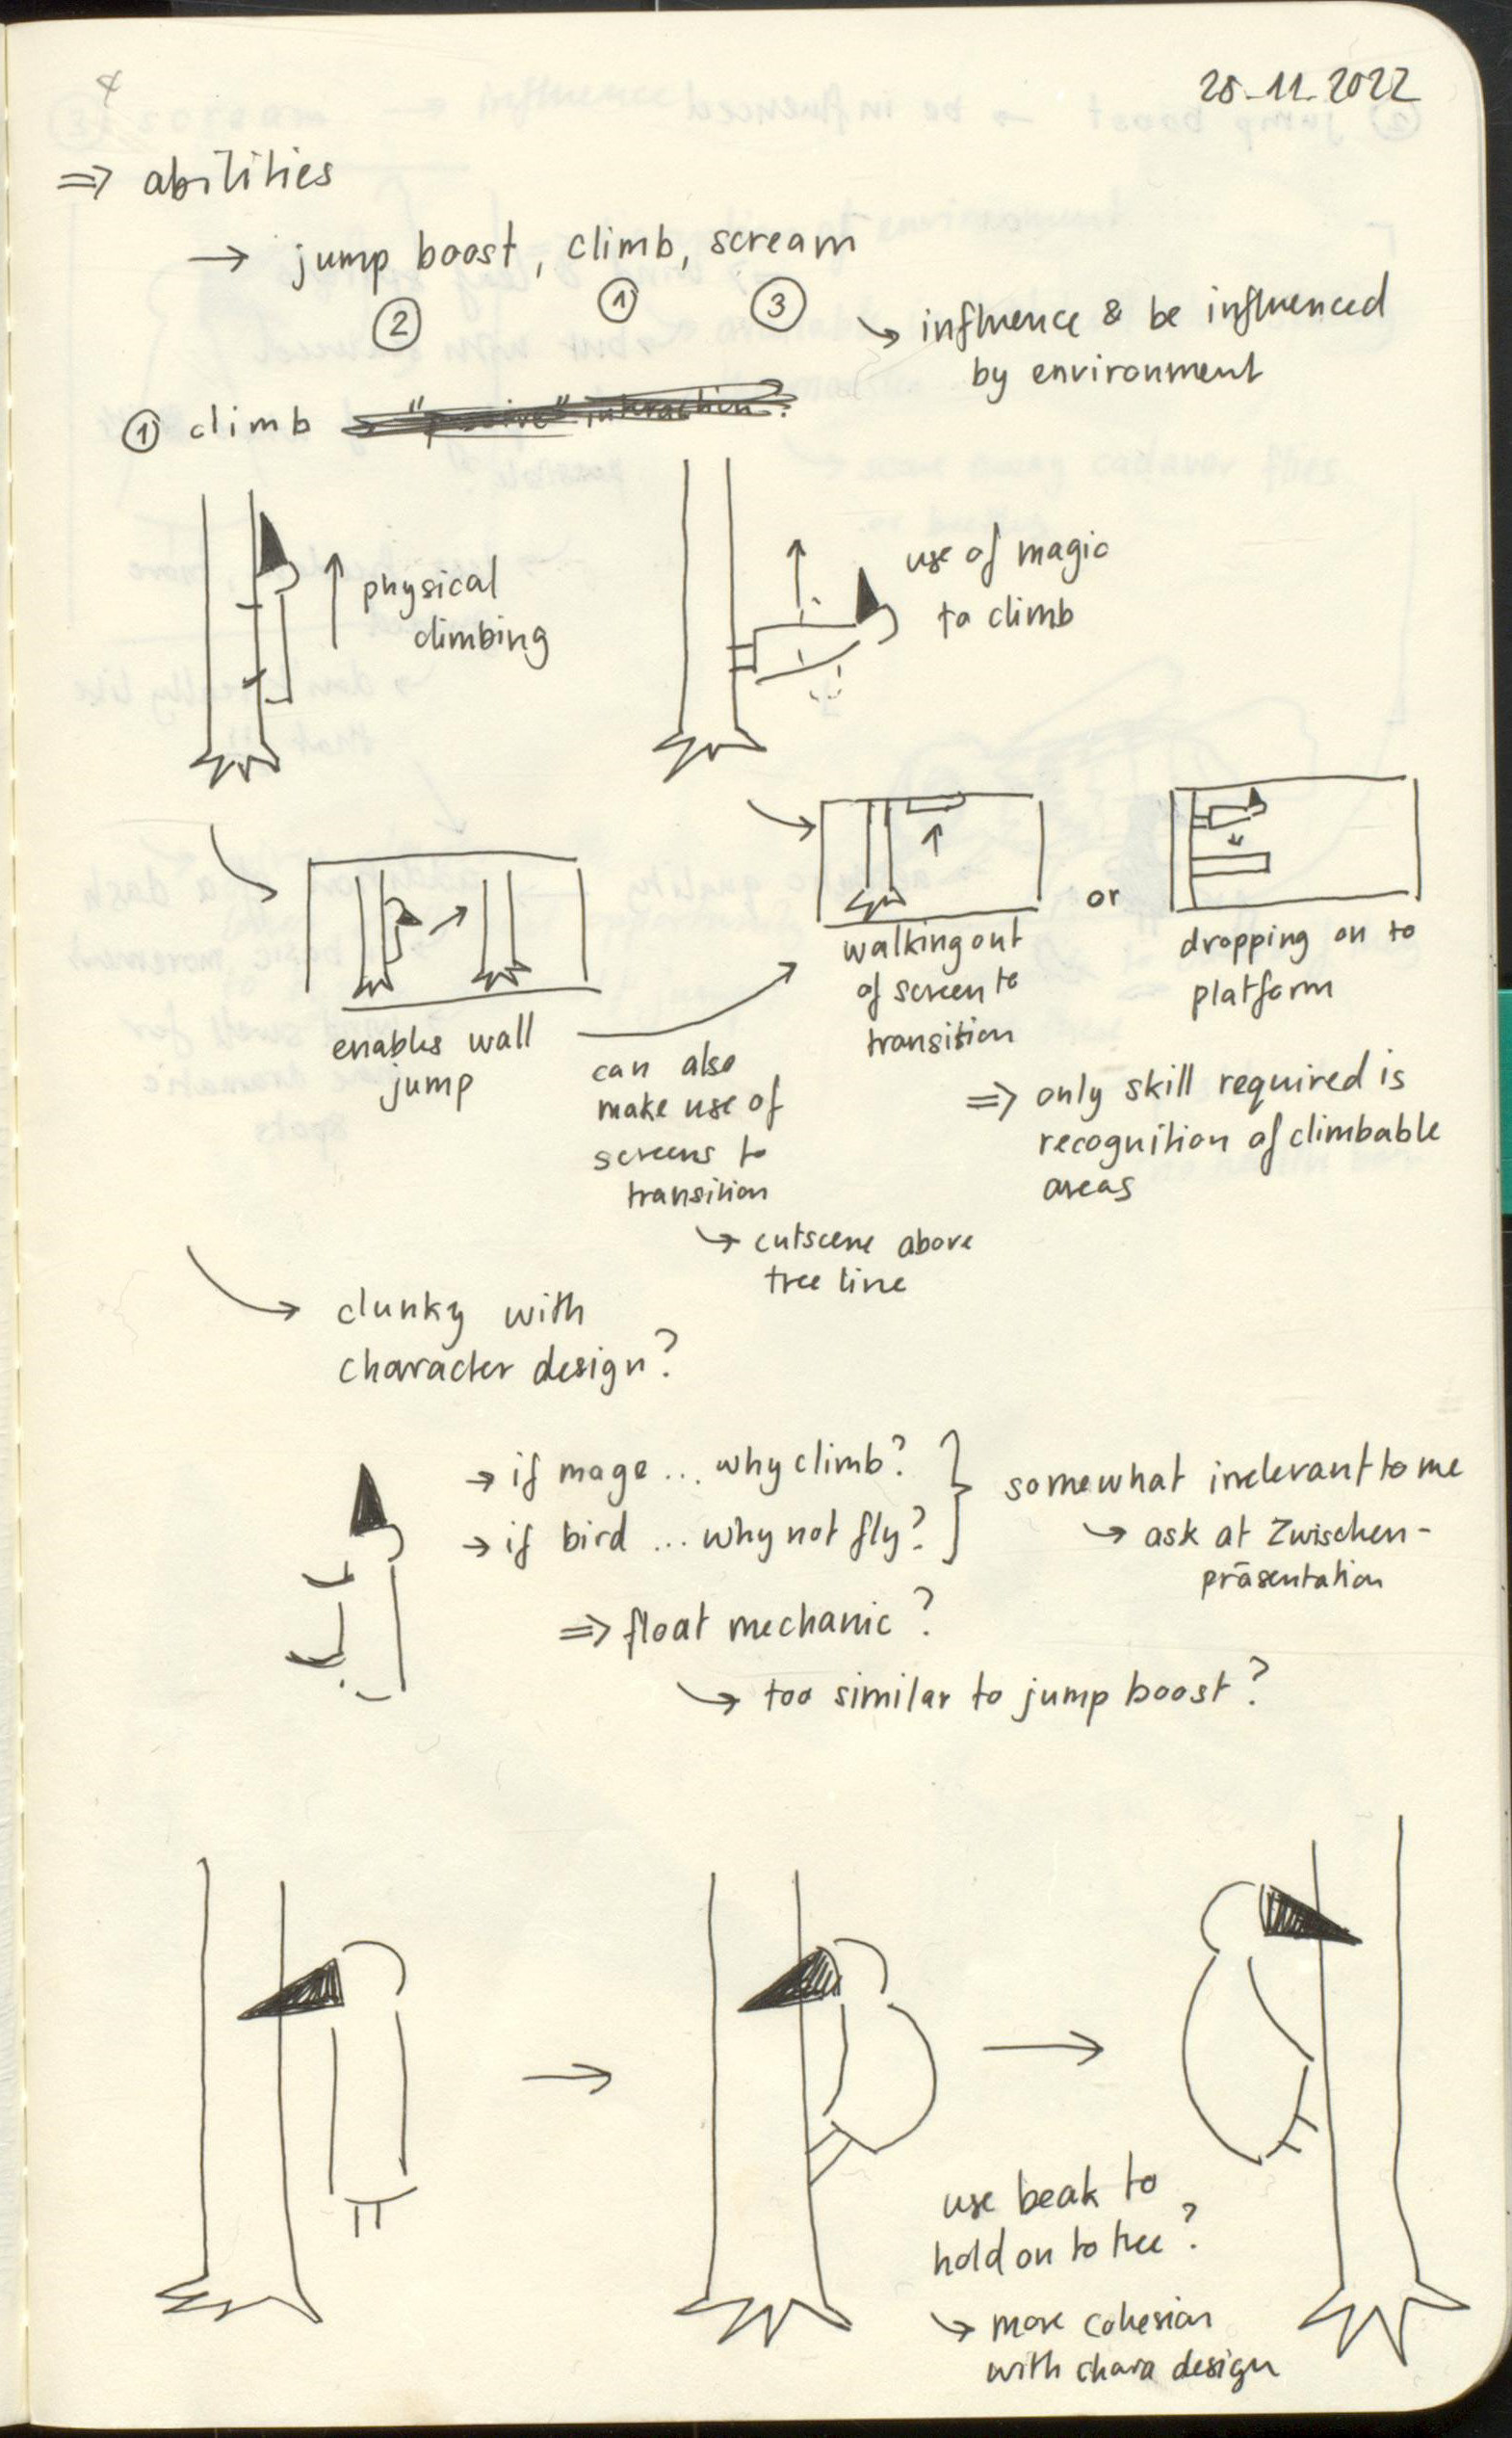 28.11.2022
⇒ abilities
→ jump boost, climb, scream
② ① ③
↳ influence & be influenced
by environment
① climb
physical
climbing
use of magic
to climb
enables wall
jump
can also
make use of
screens to
transition
↳ cutscene above
tree line
walking out
of screen to
transition
or
dropping on to
platform
⇒ only skill required is
recognition of climbable
areas
→ clunky with
character design?
→ if mage ... why climb?
→ if bird ... why not fly?
somewhat irrelevant to me
↳ ask at Zwischen-
präsentation
⇒ float mechanic?
↳ too similar to jump boost?
use beak to
hold on to tree?
↳ more cohesion
with chara design